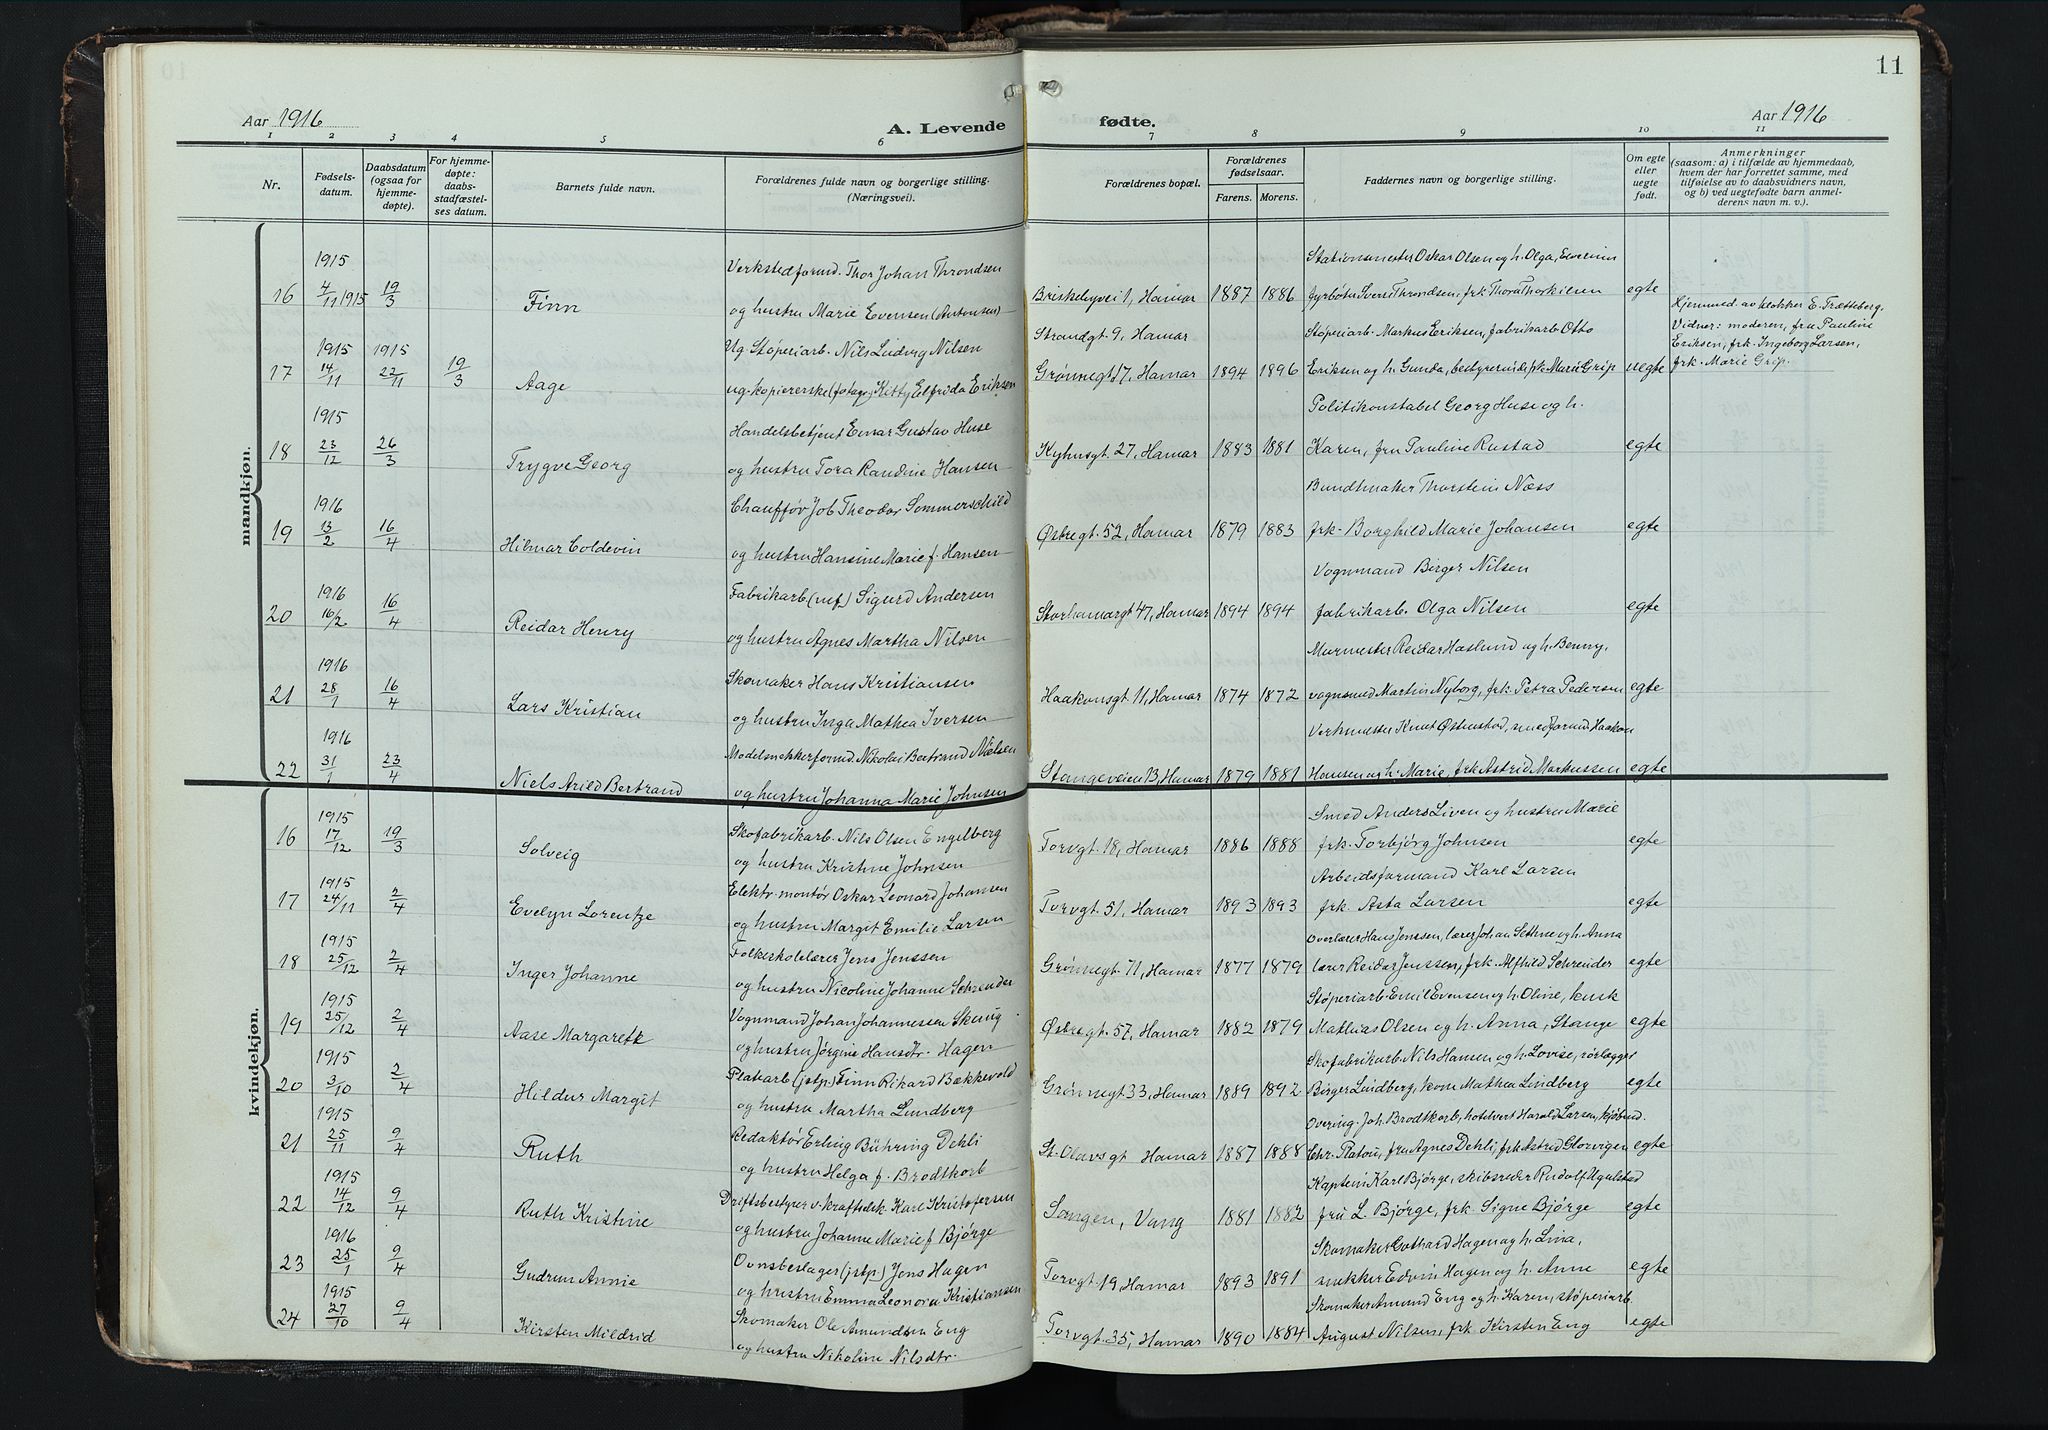 11
Aar 1916
A. Levende
fødte.
Aar 1916
1 2 3 4 5 6 7 8 9 10 11
Nr.
Fødsels-
datum.
Daabsdatum
(ogsaa for
hjemme-
døpte).
For hjemme-
døpte:
daabs-
stadfæstel-
ses datum.
Barnets fulde navn.
Forældrenes fulde navn og borgerlige stilling.
(Næringsvei).
Forældrenes bopæl.
Forældrenes
fødselsaar.
Farens. Morens.
Faddernes navn og borgerlige stilling.
Om egte
eller
uegte
født.
Anmerkninger
(saasom: a) i tilfælde av hjemmedaab,
hvem der har forrettet samme, med
tilføielse av to daabsvidners navn,
og b) ved uegtefødte barn anmel-
derens navn m. v.).
mandkjøn.
1915
Verkstedformd. Thor Johan Throndsen
Stationsmester Oskar Olsen og h. Olga, Evelinin
16 4/11 1915 19/3 Finn
og hustru Marie Evensen (Antonsen)
Briskebyvei 1, Hamar 1887 1886 fyrbøter Sverre Throndsen, frk Thora Thorkilsen egte
Hjemmed. av klokker E. Trætteberg.
Vidner: moderen, fru Pauline
Eriksen, frk. Ingeborg Larsen,
frk. Marie Grip.
1915 1915
Ug. Støperiarb. Nils Ludvig Nilsen
Strandgt 9, Hamar
Støperiarb. Markus Eriksen, fabrikarb Otto
17 14/11 22/11 19/3 Aage
ug. kopiererske (fotage) Kitty Elfrida Eriksen
Grønnegt 7, Hamar 1894 1896 Eriksen og h. Gunda, bestyrerinde frk Marie Grip uegte
1915
Handelsbetjent Einar Gustav Huse
Politikonstabel Georg Huse og h.
18 23/12 26/3 Trygve Georg
og hustru Tora Randine Hansen
Kyhusgt. 27, Hamar 1883 1881 Karen, fru Pauline Rustad egte
1916
Chauffør Job Theodor Sommerschild
Bundtmaker Thorstein Næss
19 13/2 16/4 Hilmar Coldevin
og hustru Hansine Marie f. Hansen
Østregt. 52, Hamar 1879 1883 frk. Borghild Marie Johansen egte
1916
Fabrikarb. Sigurd Andersen
Vognmand Birger Nilsen
20 16/2 16/4 Reidar Henry
og hustru Agnes Martha Nilsen
Storhamargt 47, Hamar 1894 1894 fabrikarb. Olga Nilsen egte
1916
Skomaker Hans Kristiansen
Murmester Reidar Haslund og h. Benny,
21 28/1 16/4 Lars Kristian
og hustru Inga Mathea Iversen
Haakonsgt 11, Hamar 1874 1872 vognsmed Martin Nyborg, frk. Petra Pedersen egte
1916
Modelsnekkerformd. Nikolai Bertrand Nielsen
Verkmester Knut Østenstad, smedformd. Haakon
22 31/1 23/4 Niels Arild Bertrand
og hustru Johanna Marie Johnsen
Stangeveien 13, Hamar 1879 1881 Hansen og h. Marie, frk Astrid Markussen egte
kvindekjøn.
1915
Skofabrikarb. Nils Olsen Engelberg
Smed Anders Liven og hustru Marie
16 17/12 19/3 Solveig
og hustru Kristine Johnsen
Torvgt. 18, Hamar 1886 1888 frk. Torbjörg Johnsen egte
1915
Elektr. montør Oskar Leonard Johansen
Arbeidsformand Karl Larsen
17 24/11 2/4 Evelyn Lorentze
og hustru Margit Emilie Larsen
Torvgt. 51, Hamar 1893 1893 frk. Asta Larsen egte
1915
Folkeskolelærer Jens Jenssen
Overlærer Hans Jenssen, lærer Johan Sethne og h. Anna
18 25/12 2/4 Inger Johanne
og hustru Nicoline Johanne Schreuder
Grønnegt. 71, Hamar 1877 1879 lærer Reidar Jenssen, frk. Alfhild Schreuder egte
1915
Vognmand Johan Johannessen Skung
Støperiarb Emil Evensen og h. Oline, kusk
19 25/12 2/4 Aase Margarethe
og hustru Jørgine Hansdtr. Hagen
Østregt. 57, Hamar 1882 1879 Mathias Olsen og h. Anna, Stange egte
1915
Platearb (jstp.) Finn Rikard Bækkevold
Skofabrikarb. Nils Hansen og h. Lovise, rörlægger
20 3/10 2/4 Hildur Margit
og hustru Martha Lundberg
Grønnegt 33, Hamar 1889 1892 Birger Lindberg, kone Mathea Lindberg egte
1915
Redaktör Erling Bühring Dehli
Overing. Joh. Brodtkorb, hotelvert Harald Larsen, kjøbmd.
21 25/11 9/4 Ruth
og hustru Helga f. Brodtkorb
St. Olavsgt Hamar 1887 1888 Chr. Platou, fru Agnes Dehli, frk Astrid Glorvigen egte
1915
Driftsbestyrer v. kraftselsk. Karl Kristofersen
Kaptein Karl Bjørge, skibsreder Rudolf Ugelstad
22 14/12 9/4 Ruth Kristine
og hustru Johanne Marie f Bjørge
Sangen, Vang 1881 1882 fru L. Bjørge, frk. Signe Bjørge egte
1916
Ovnsbeslager (jstp.) Jens Hagen
Skomaker Gothard Hagen og h. Lina,
23 25/1 9/4 Gudrun Annie
og hustru Emma Leonora Kristiansen
Torvgt. 19, Hamar 1893 1891 snekker Edvin Hagen og h. Anne egte
1915
Skomaker Ole Amundsen Eng
Skomaker Amund Eng og h. Karen, støperiarb.
24 27/10 9/4 Kirsten Mildrid
og hustru Nikoline Nilsdtr.
Torvgt. 35, Hamar 1890 1884 August Nilsen, frk. Kirsten Eng egte